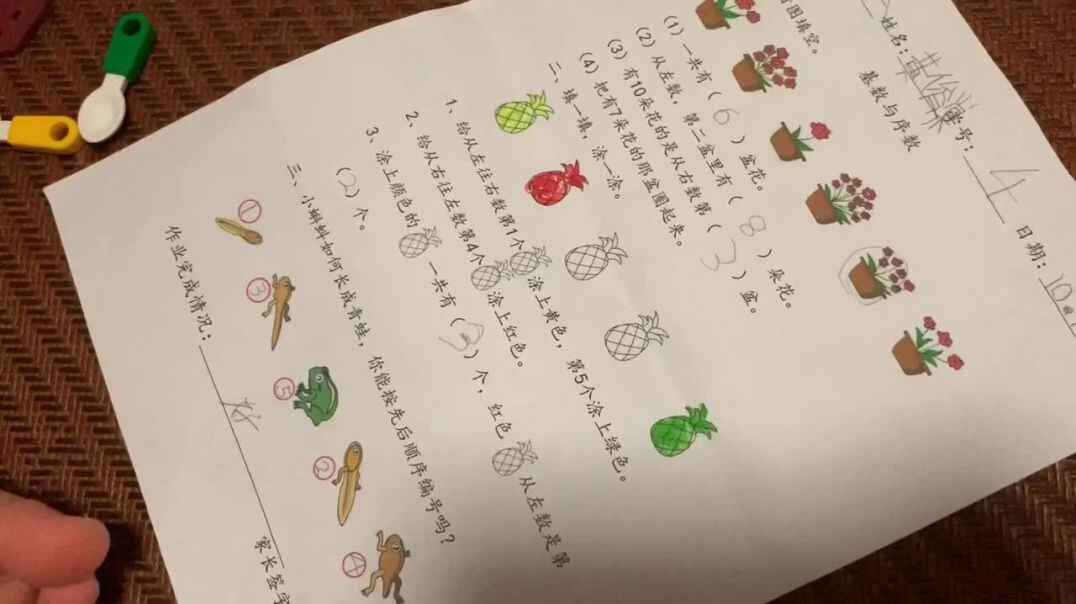 姓名：黄 学号：4 日期：10
基数与序数
看图填空。
(1) 一共有（6）盆花。
(2) 从左数，第二盆里有（8）朵花。
(3) 有10朵花的是从右数第（3）盆。
(4) 把有7朵花的那盆圈起来。
二、填一填，涂一涂。
1、给从左往右数第1个涂上黄色，第5个涂上绿色。
2、给从右往左数第4个涂上红色。
3、涂上颜色的一共有（3）个，红色从左数是第
（2）个。
三、小蝌蚪如何长成青蛙，你能按先后顺序编号吗？
① ③ ⑤ ② ④
作业完成情况：好 家长签字